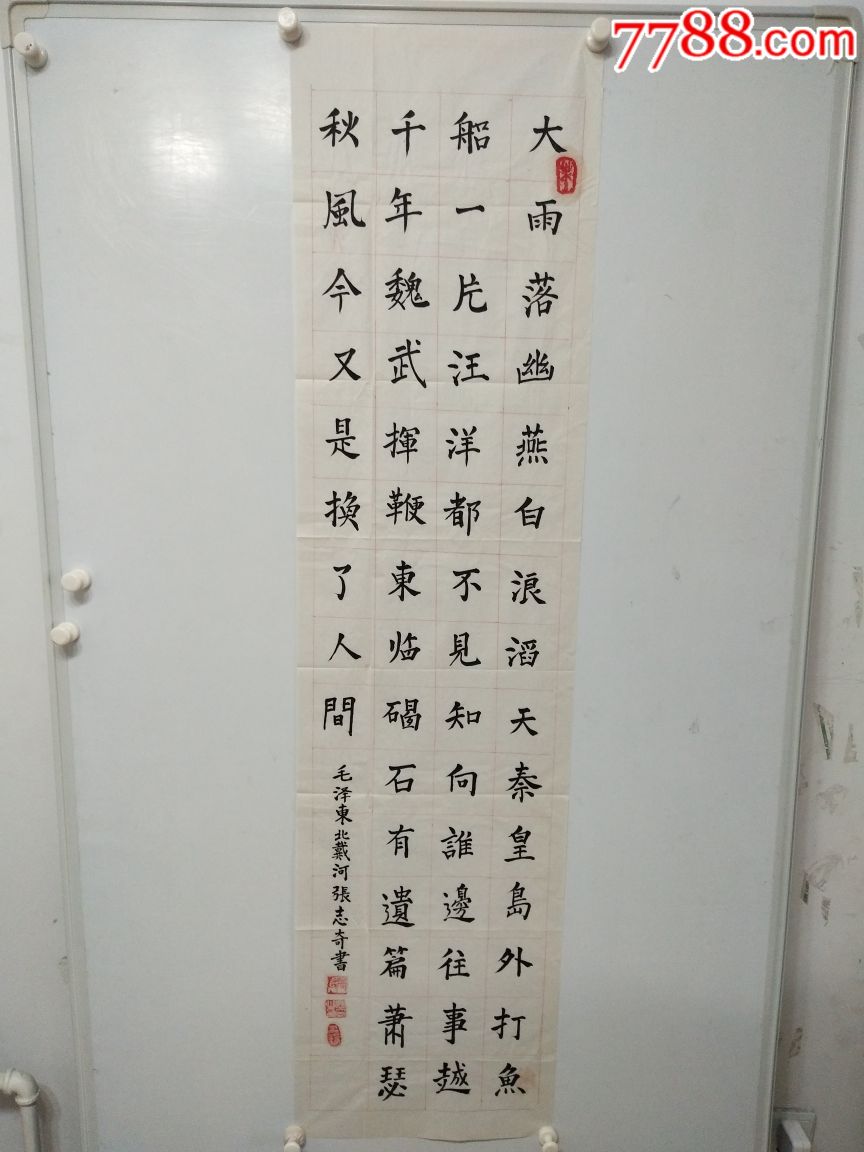 7788.com
大雨落幽燕白浪滔天秦皇島外打魚
船一片汪洋都不見知向誰邊往事越
千年魏武揮鞭東临碣石有遺篇蕭瑟
秋風今又是換了人間
毛泽東北戴河張志奇書